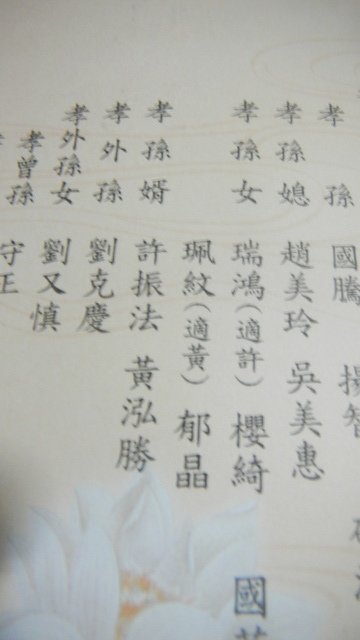 孝孫 國騰 揚智
孝孫媳 趙美玲 吳美惠
孝孫女 瑞鴻(適許) 櫻綺 國
珮紋(適黃) 郁晶
孝孫婿 許振法 黃泓勝
孝外孫 劉克慶
孝外孫女 劉又慎
孝曾孫 守正